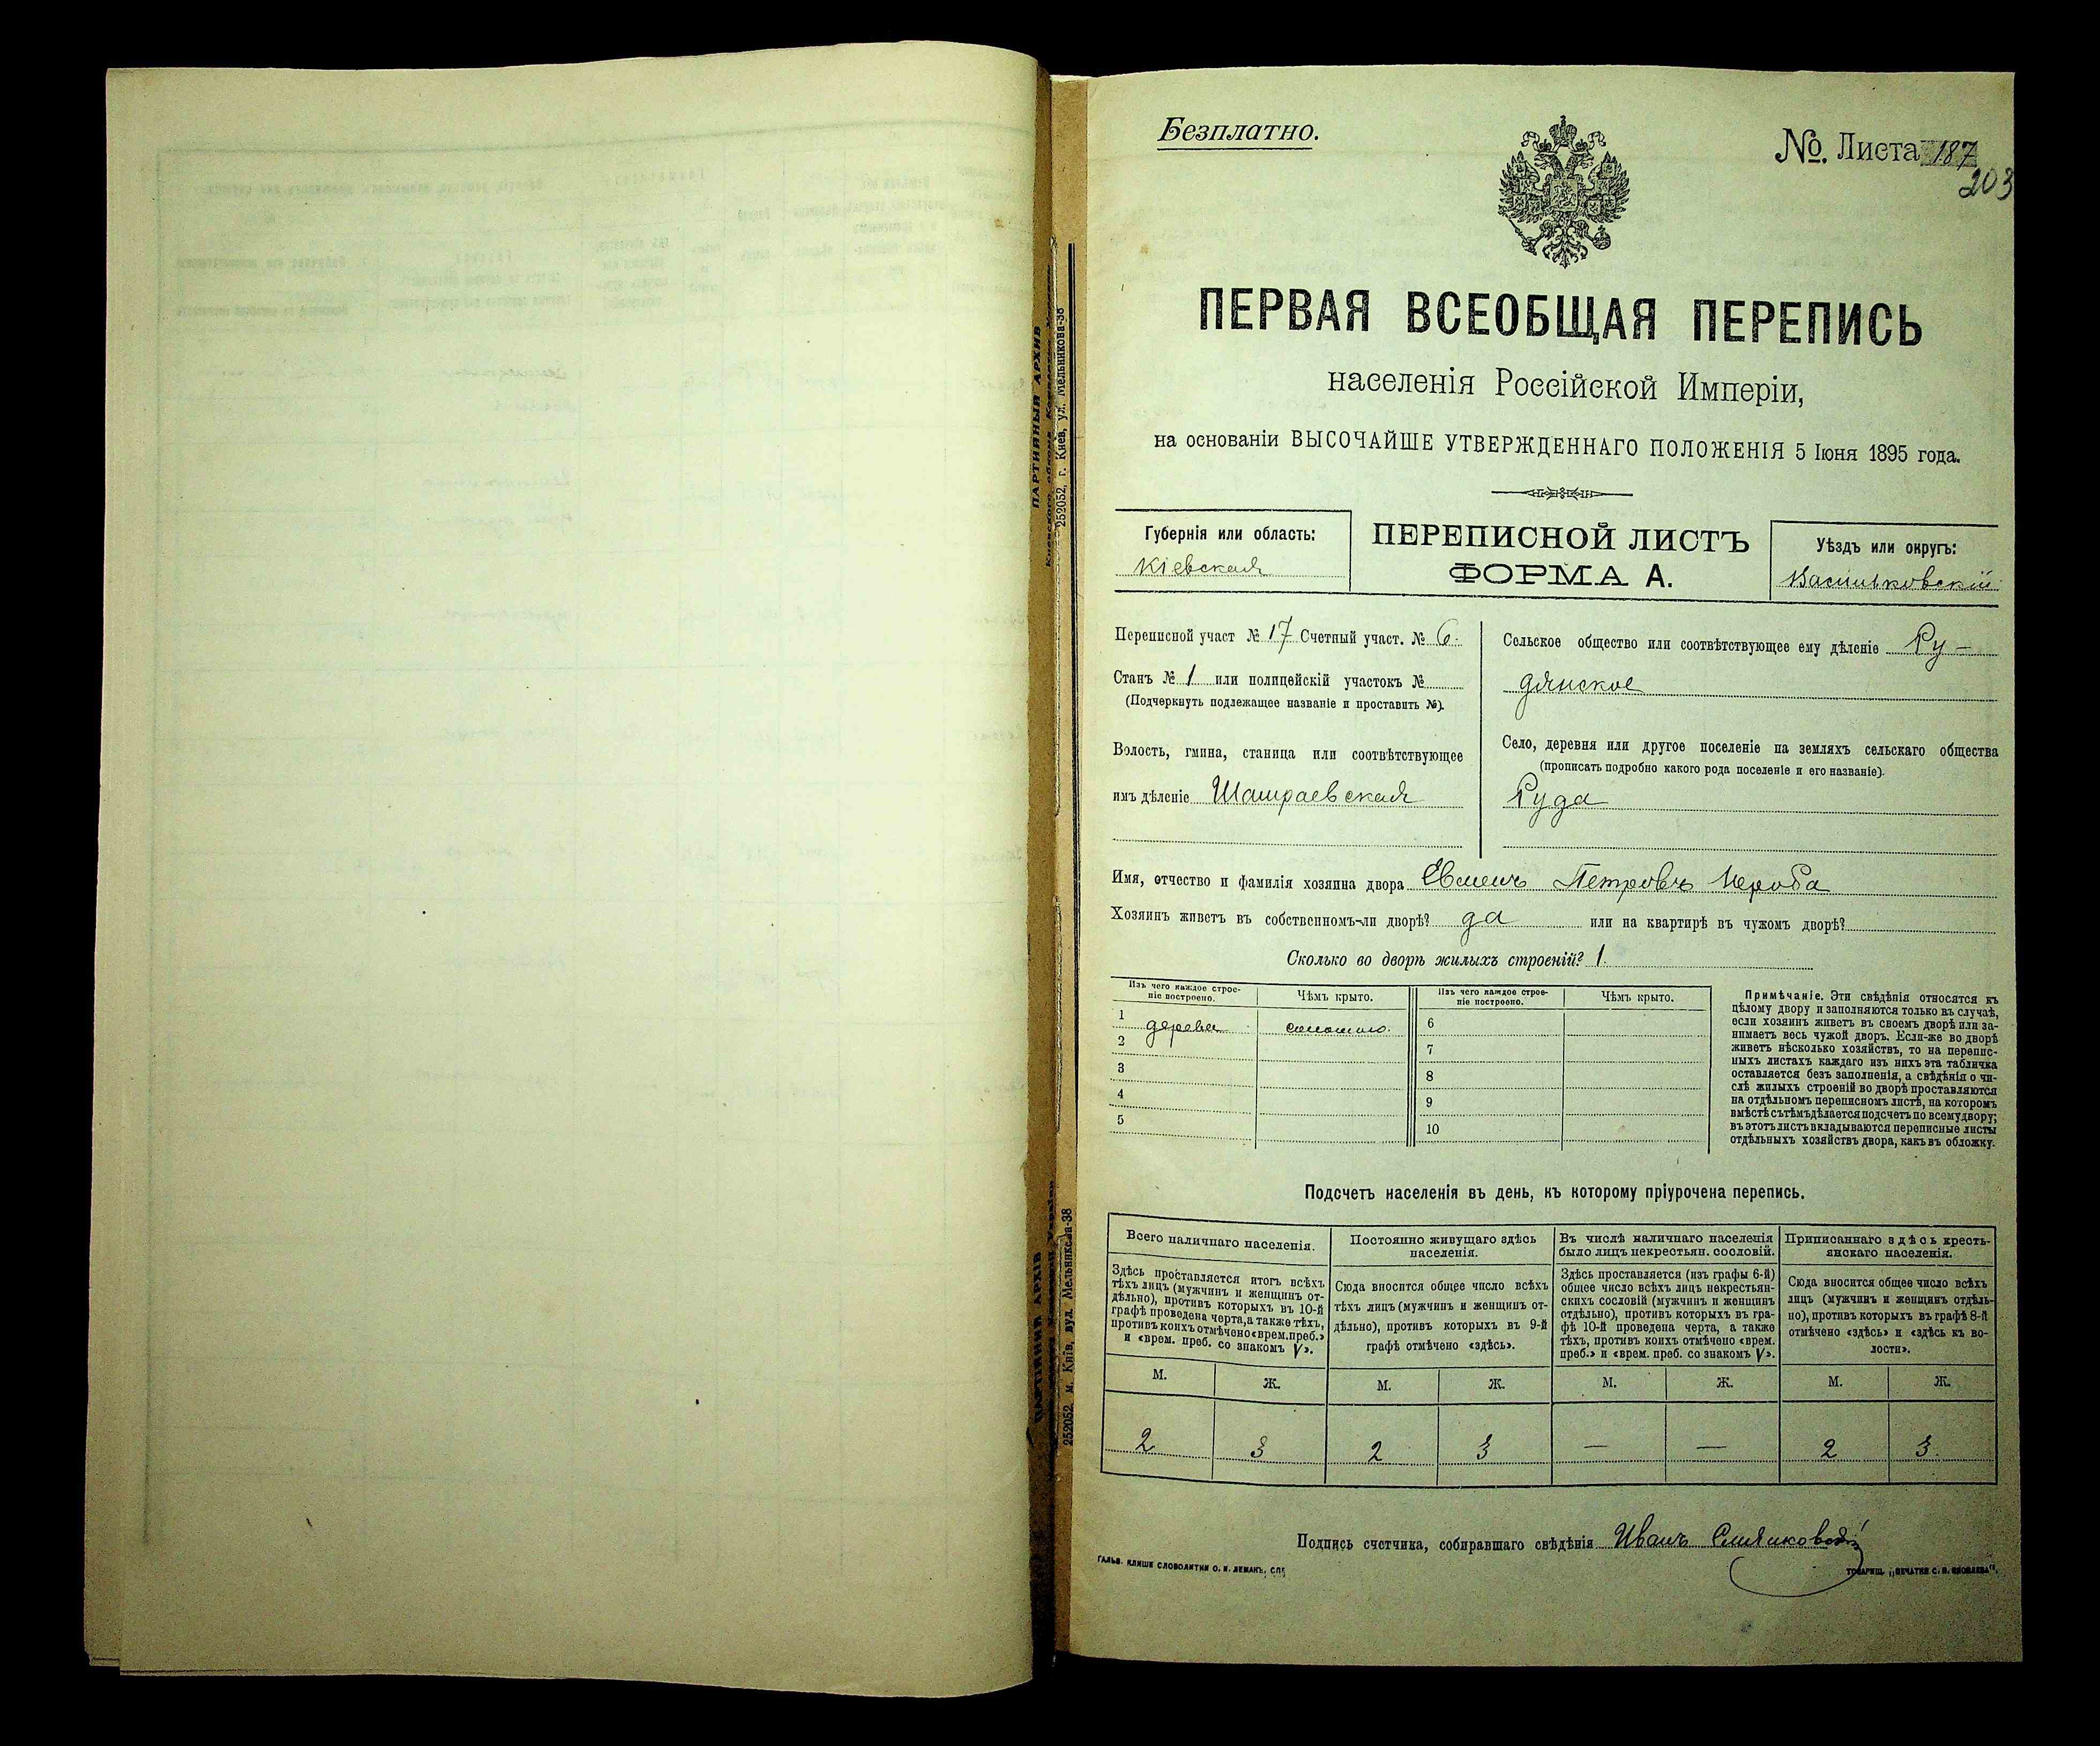 Безплатно.
№. Листа 187
203
ПЕРВАЯ ВСЕОБЩАЯ ПЕРЕПИСЬ
населенія Россійской Имперіи,
на основаніи ВЫСОЧАЙШЕ УТВЕРЖДЕННАГО ПОЛОЖЕНІЯ 5 Іюня 1895 года.
Губернія или область:
Кіевская
ПЕРЕПИСНОЙ ЛИСТЪ
ФОРМА А.
Уѣздъ или округъ:
Васильковскій
Переписной участ № 17 Счетный участ. № 6.
Станъ № 1 или полицейскій участокъ №
(Подчеркнуть подлежащее названіе и проставить №).
Волость, гмина, станица или соотвѣтствующее
имъ дѣленіе Шамраевская
Сельское общество или соотвѣтствующее ему дѣленіе Ру-
дянское
Село, деревня или другое поселеніе на земляхъ сельскаго общества
(прописать подробно какого рода поселеніе и его названіе).
Руда
Имя, отчество и фамилія хозяина двора Евменъ Петровъ Нероба
Хозяинъ живетъ въ собственномъ-ли дворѣ? да или на квартирѣ въ чужомъ дворѣ?
Сколько во дворѣ жилыхъ строеній? 1.
Изъ чего каждое строе-
ніе построено.
Чѣмъ крыто.
Изъ чего каждое строе-
ніе построено.
Чѣмъ крыто.
1 дерева соломою. 6
2 7
3 8
4 9
5 10
Примѣчаніе. Эти свѣдѣнія относятся къ
цѣлому двору и заполняются только въ случаѣ,
если хозяинъ живетъ въ своемъ дворѣ или за-
нимаетъ весь чужой дворъ. Если-же во дворѣ
живетъ нѣсколько хозяйствъ, то на перепис-
ныхъ листахъ каждаго изъ нихъ эта табличка
оставляется безъ заполненія, а свѣдѣнія о чи-
слѣ жилыхъ строеній во дворѣ проставляются
на отдѣльномъ переписномъ листѣ, на которомъ
вмѣстѣ съ тѣмъ дѣлается подсчетъ по всему двору;
въ этотъ листъ вкладываются переписные листы
отдѣльныхъ хозяйствъ двора, какъ въ обложку.
Подсчетъ населенія въ день, къ которому пріурочена перепись.
Всего наличнаго населенія.
Здѣсь проставляется итогъ всѣхъ
тѣхъ лицъ (мужчинъ и женщинъ от-
дѣльно), противъ которыхъ въ 10-й
графѣ проведена черта, а также тѣхъ,
противъ коихъ отмѣчено «врем. преб.»
и «врем. преб. со знакомъ V».
Постоянно живущаго здѣсь
населенія.
Сюда вносится общее число всѣхъ
тѣхъ лицъ (мужчинъ и женщинъ от-
дѣльно), противъ которыхъ въ 9-й
графѣ отмѣчено «здѣсь».
Въ числѣ наличнаго населенія
было лицъ некрестьян. сословій.
Здѣсь проставляется (изъ графы 6-й)
общее число всѣхъ лицъ некрестьян-
скихъ сословій (мужчинъ и женщинъ
отдѣльно), противъ которыхъ въ гра-
фѣ 10-й проведена черта, а также
тѣхъ, противъ коихъ отмѣчено «врем.
преб.» и «врем. преб. со знакомъ V».
Приписаннаго здѣсь кресть-
янскаго населенія.
Сюда вносится общее число всѣхъ
лицъ (мужчинъ и женщинъ отдѣль-
но), противъ которыхъ въ графѣ 8-й
отмѣчено «здѣсь» и «здѣсь къ во-
лости».
М. Ж. М. Ж. М. Ж. М. Ж.
2 3 2 3 — — 2 3.
Подпись счетчика, собиравшаго свѣдѣнія Иванъ
ГАЛЬВ. КЛИШЕ СЛОВОЛИТНИ О. И. ЛЕМАНЪ, СПБ
ТОВАРИЩ. „ПЕЧАТНЯ С. П. ЯКОВЛЕВА“.
ПАРТИЙНЫЙ АРХИВ
252052, г. Киев, ул. Мельникова-38
ПАРТІЙНИЙ АРХІВ
252052 м. Київ, вул. Мельникова-38